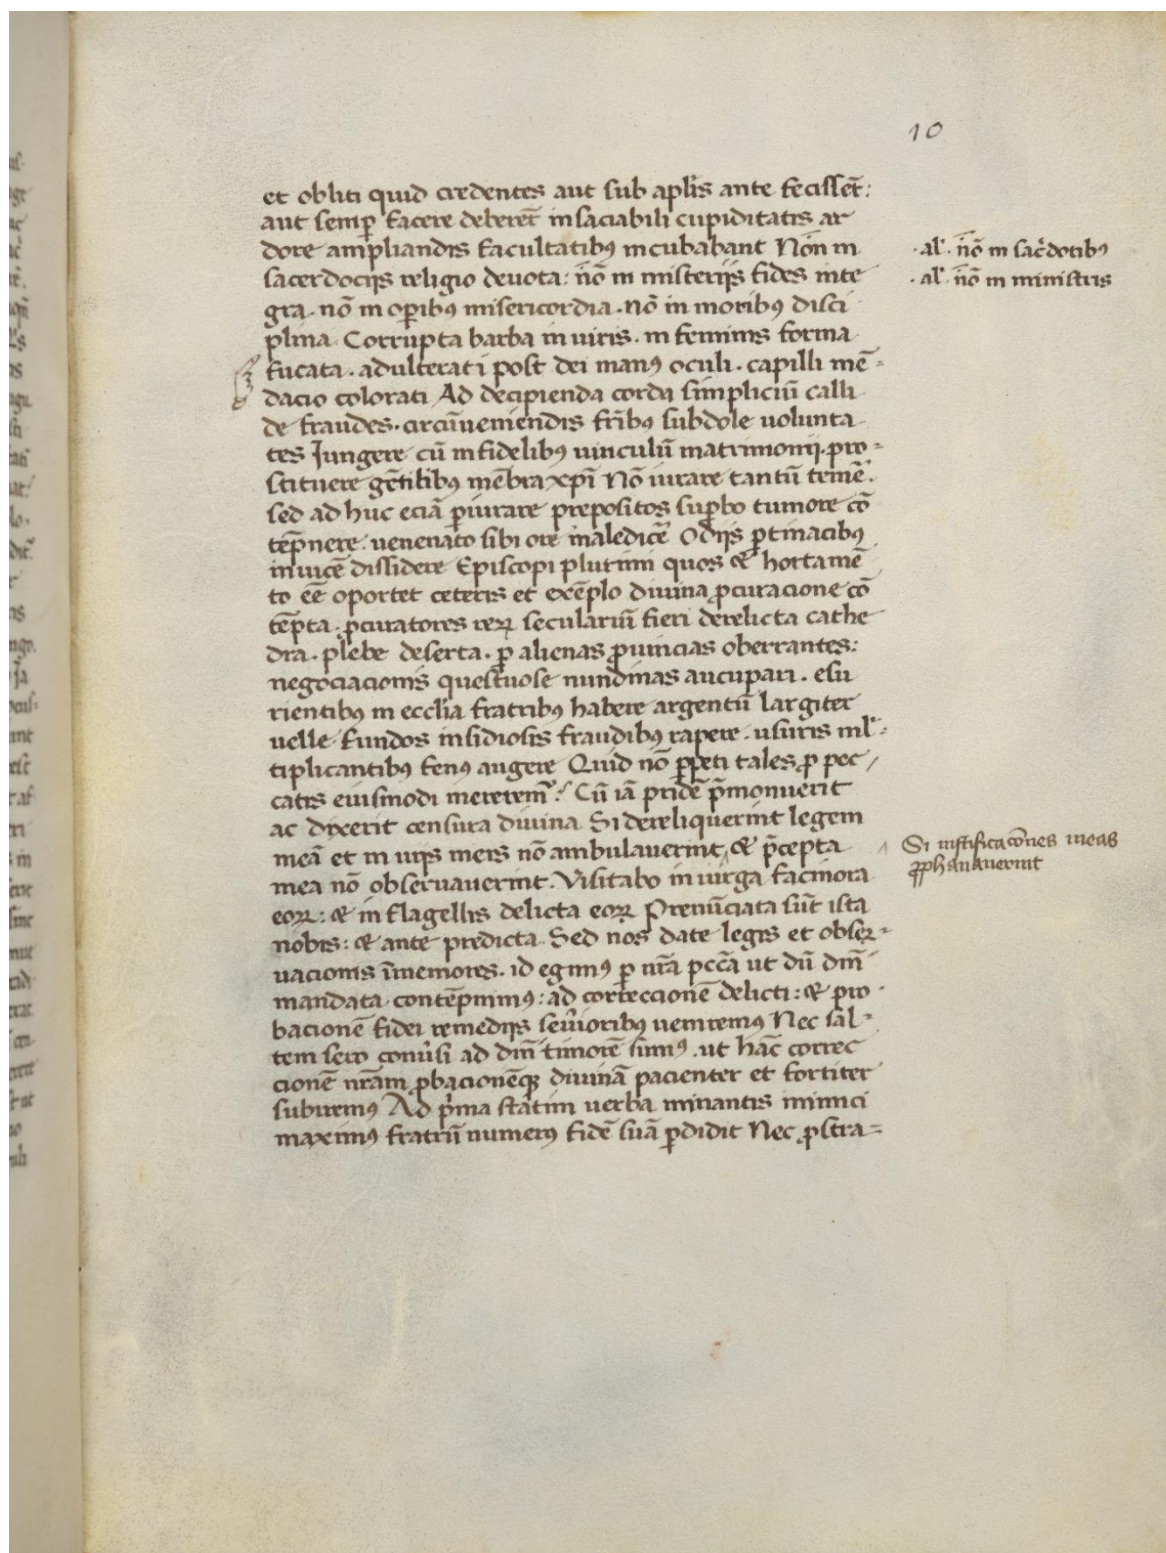 10
et obliti quid credentes aut sub aplis ante fecisset̄:
aut semp̱ facere deberet̄ insaciabili cupiditatis ar
dore ampliandis facultatibꝰ incubabant Non in
sacerdociis religio deuota: nō in misteriis fides inte
gra. nō in oꝑibꝰ misericordia. nō in moribꝰ disci
plina. Corrupta barba in uiris. in feminis forma
fucata. adulterati post dei manꝰ oculi. capilli mē-
dacio colorati Ad decipienda corda simpliciū calli
de fraudes. circūueniendis fr̄ibꝰ subdole uolunta
tes Jungere cū infidelibꝰ uinculū matrimonii. pro-
stituere gētilibꝰ mēbra xp̄i Nō iurare tantū temē.
sed ad huc eciā ꝑiurare prepositos suꝑbo tumore cō
tēpnere. uenenato sibi ore maledicē Odiis ꝑtinacibꝰ
inuicē dissidere Episcopi plurimi quos & hortamē
to eē oportet ceteris et exēplo diuina ꝓcuracione cō
tēpta. ꝓcuratores reꝝ seculariū fieri derelicta cathe
dra. plebe deserta. ꝑ alienas ꝓuincias oberrantes:
negociacionis questuose nundinas aucupari. esu
rientibꝰ in ecclia fratribꝰ habere argentū largiter
uelle fundos insidiosis fraudibꝰ rapere. usuris ml̄-
tiplicantibꝰ fenꝰ augere Quid nō ꝑpeti tales ꝓ pec/
catis eiusmodi meremur̄? Cū iā pridē p̄monuerit
ac dixerit censura diuina Si dereliquerint legem
meā et in uiis meis nō ambulauerint, & p̄cepta
mea nō obseruauerint. Visitabo in uirga facinora
eoꝝ: & in flagellis delicta eoꝝ Prenūciata sūt ista
nobis: & ante predicta. Sed nos date legis et obser-
uacionis īmemores. id egimꝰ ꝑ nrā pccā ut dū dm̄
mandata contēpnimꝰ: ad correccionē delicti: & pro
bacionē fidei remediis seuioribꝰ ueniremꝰ Nec sal-
tem sero conuersi ad dm̄ timorē simꝰ. ut hāc correc
cionē nrām ꝓbacionēqꝫ diuinā pacienter et fortiter
subiremꝰ Ad p̄ma statim uerba minantis inimici
maximꝰ fratrū numerꝰ fidē suā ꝑdidit Nec ꝓstra-
.al'. nō in sac̄dotibꝰ
.al'. nō in ministris
Si iustificacōnes meas
ꝓphanauerint